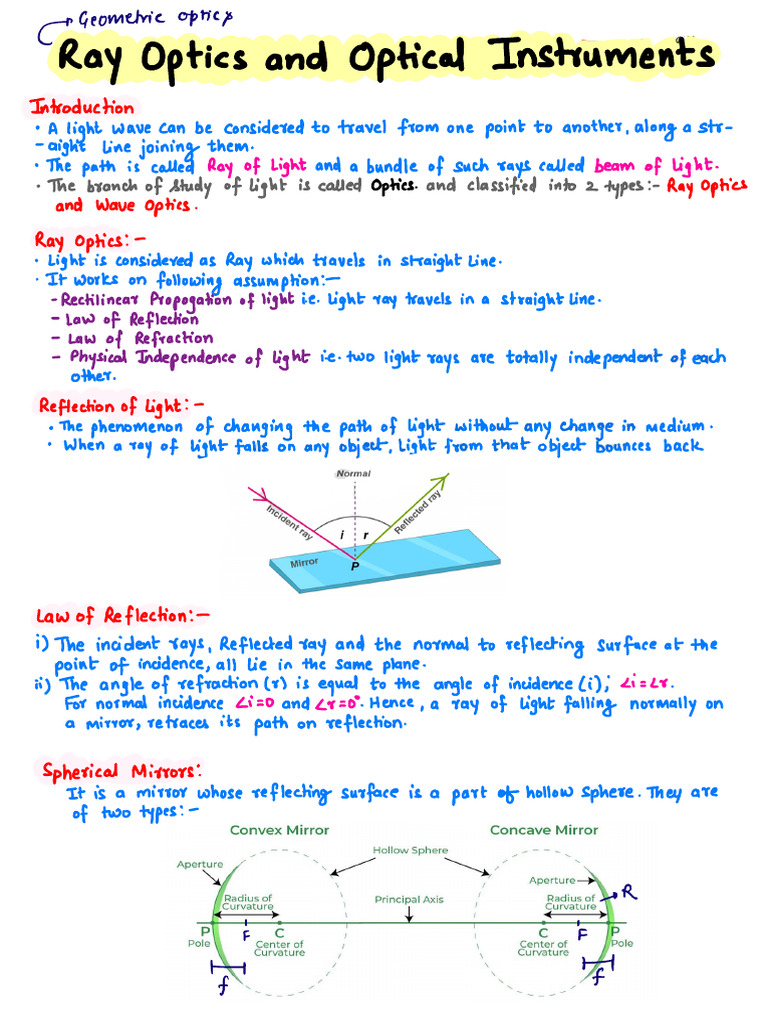 Geometric optics
Ray Optics and Optical Instruments
Introduction
· A light wave can be considered to travel from one point to another, along a str-
-aight line joining them.
· The path is called Ray of Light and a bundle of such rays called beam of Light.
· The branch of study of light is called Optics. and classified into 2 types:- Ray Optics
and Wave Optics.
Ray Optics:-
· Light is considered as Ray which travels in straight Line.
· It works on following assumption:-
- Rectilinear Propogation of light i.e. Light ray travels in a straight Line.
- Law of Reflection
- Law of Refraction
- Physical Independence of Light i.e. two light rays are totally independent of each
other.
Reflection of Light:-
· The phenomenon of changing the path of light without any change in medium.
· When a ray of light falls on any object, Light from that object bounces back
Normal
Incident ray
Reflected ray
i r
Mirror
P
Law of Reflection:-
i) The incident rays, Reflected ray and the normal to reflecting surface at the
point of incidence, all lie in the same plane.
ii) The angle of refraction (r) is equal to the angle of incidence (i); ∠i=∠r.
For normal incidence ∠i=0 and ∠r=0°. Hence, a ray of light falling normally on
a mirror, retraces its path on reflection.
Spherical Mirrors:
It is a mirror whose reflecting surface is a part of hollow sphere. They are
of two types:-
Convex Mirror
Concave Mirror
Hollow Sphere
Aperture
Aperture
Radius of
Curvature
Principal Axis
Radius of
Curvature
R
P
Pole
F
C
Center of
Curvature
C
Center of
Curvature
F
P
Pole
f
f